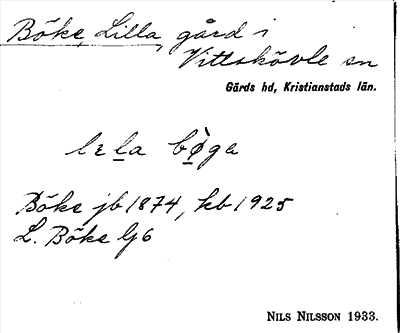 Böke, Lilla, gård i
Vittskövle sn
Gärds hd, Kristianstads län.
lɛla bø̀ga
Böke jb 1874, kb 1925
L. Böke GJ6
NILS NILSSON 1933.